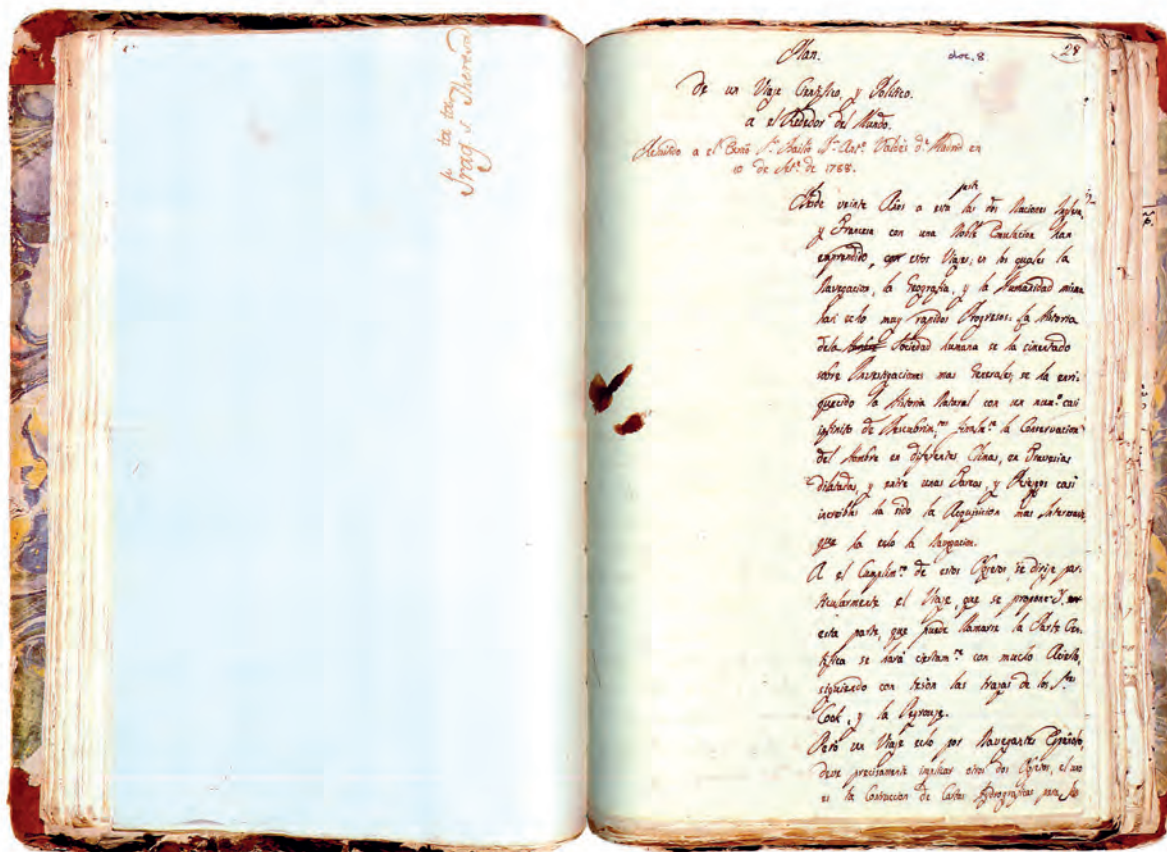 Frag.ta S. Theresa
doc. 8.
28
Plan.
De un Viaje Cientifico, y Politico.
a el Rededor del Mundo.
Remitido a el Exmõ S.r Bailio F.r Ant.o Valdés d.e Madrid en
10 de Sep.e de 1788.
Desde veinte Años a esta parte las dos Naciones Inglesa,
y Francesa con una Noble Emulacion han
emprendido, estos Viajes; en los quales la
Navegacion, la Geografia, y la Humanidad misma
han echo muy rapidos Progresos: La historia
dela Sociedad humana se ha cimentado
sobre Investigaciones mas Generales; se ha enri-
quecido la historia Natural con un num.o casi
infinito de Descubrim.tos finalm.te la Conservacion
del Hombre en diferentes Climas, en Travesias
dilatadas, y entre unas Tareas, y Riesgos casi
increibles ha sido la Adquisicion mas Interesante,
que ha echo la Navegacion.
A el Cumplim.to de estos Objetos, se dirije par-
ticularmente el Viaje, que se propone; Y
esta parte, que puede llamarse la Parte Cen-
tifica se hará ciertam.te con mucho Acierto,
siguiendo con teson las trazas de los S.res
Cook, y la Peyrouse.
Pero un Viaje echo por Navegantes Españoles,
deve precisamente implicar otros dos Objetos, el uno
es la Construccion de Cartas Hydrograficas para las